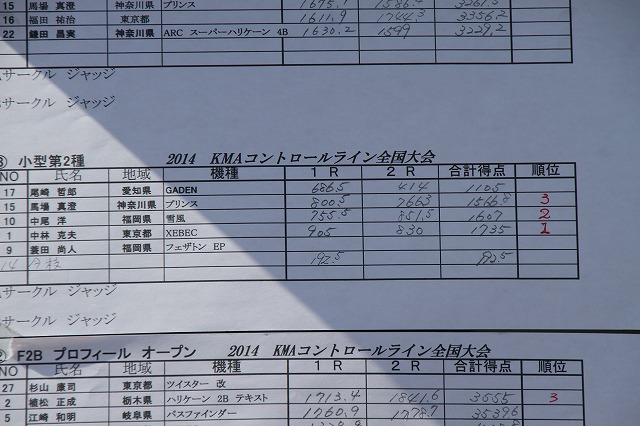 15 馬場 真澄 神奈川県 プリンス 1675.1 1586.2 3261.3
16 福田 祐治 東京都 1611.9 1744.3 3356.2
22 鎌田 昌実 神奈川県 ARC スーパーハリケーン 4B 1630.2 1599 3229.2
サークル ジャッジ
サークル ジャッジ
③ 小型第2種 2014 KMAコントロールライン全国大会
NO 氏名 地域 機種 1 R 2 R 合計得点 順位
17 尾崎 哲郎 愛知県 GADEN 686.5 414 1105
15 馬場 真澄 神奈川県 プリンス 800.5 766.3 1566.8 3
10 中尾 洋 福岡県 雪風 755.5 851.5 1607 2
1 中林 克夫 東京都 XEBEC 905 830 1735 1
9 蓑田 尚人 福岡県 フェザトン EP
14 192.5 192.5
サークル ジャッジ
サークル ジャッジ
② F2B プロフィール オープン 2014 KMAコントロールライン全国大会
NO 氏名 地域 機種 1 R 2 R 合計得点 順位
27 杉山 康司 東京都 ツイスター 改
2 植松 正成 栃木県 ハリケーン 2B テキスト 1713.4 1841.6 3555 3
5 江崎 和明 岐阜県 パスファインダー 1760.9 1778.7 3539.6